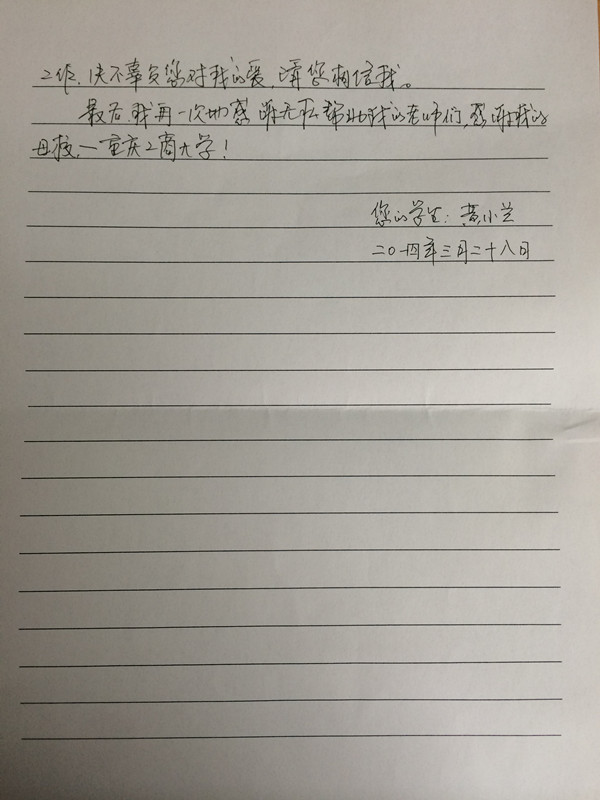 工作,决不辜负您对我的爱,请您相信我。
最后,我再一次地感谢无私帮助我的老师们,感谢我的
母校,一重庆工商大学!
您的学生:黄小兰
二〇一四年三月二十八日